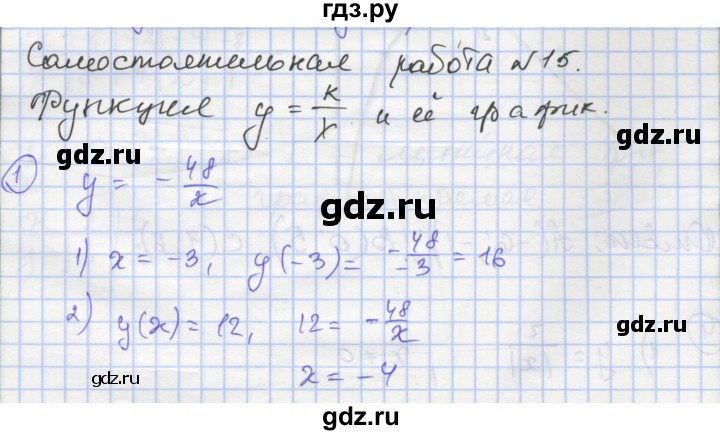 гдз.ру
Самостоятельная работа №15.
Функция y = k/x и её график.
gdz.ru
gdz.ru
gdz.ru
① y = - 48/x
1) x = -3, y(-3) = - 48/-3 = 16
2) y(x) = 12, 12 = - 48/x
gdz.ru
gdz.ru
x = -4
gdz.ru
gdz.ru